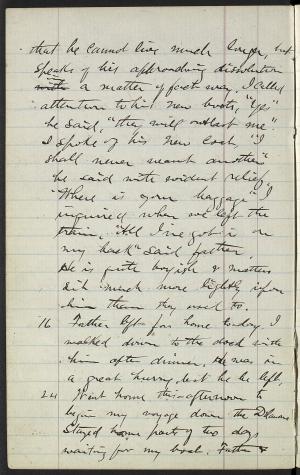 that he cannot live much longer, but
speaks of his approaching dissolution
with a matter of fact way. I called
attention to his new boots, "Yes"
he said, "they will outlast me".
I spoke of his new coat, "I
shall never want another"
he said with evident relief.
"Where is your baggage" I
inquired when we left the
train, "All I've got is on
my back" said father.
He is quite boyish & matters
sit much more lightly upon
him than they used to.
16 Father left for home to-day. I
walked down to the dock with
him after dinner. He was in
a great hurry, lest he be left,
24 Went home this afternoon to
begin my voyage down the Delaware
Stayed home part of two days
waiting for my boat. Father &